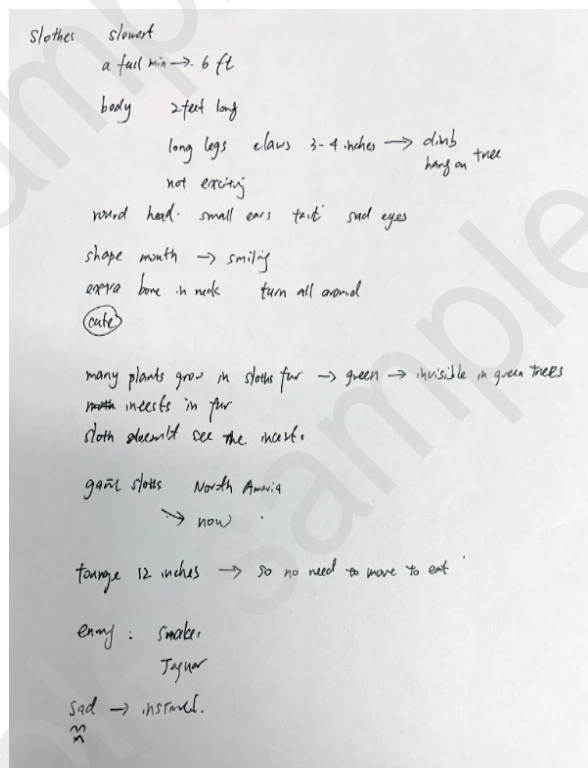 Slothes slowest
a full min → 6 ft
body 2 feet long
long legs claws 3-4 inches → climb
hang on tree
not exciting
round head. small ears tail sad eyes
shape mouth → smiling
extra bone in neck turn all around
cute
many plants grow in sloths fur → green → invisible in green trees
insects in fur
sloth doesn't see the insect.
sloths North America
→ now
tounge 12 inches → so no need to move to eat
enmy : snake.
Jaguar
sad →
sample
sample